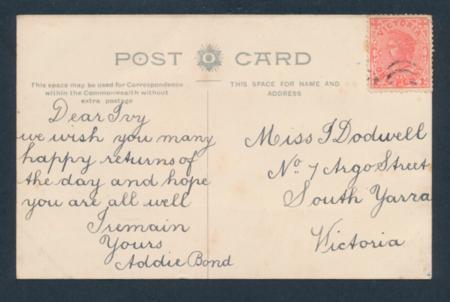 POST CARD
VICTORIA
This space may be used for Correspondence
within the Commonwealth without
extra postage
THIS SPACE FOR NAME AND
ADDRESS
Dear Ivy
we wish you many
happy returns of
the day and hope
you are all well
I remain
Yours
Addie Bond
Miss I Dodwell
No. 7 Argo Street
South Yarra
Victoria